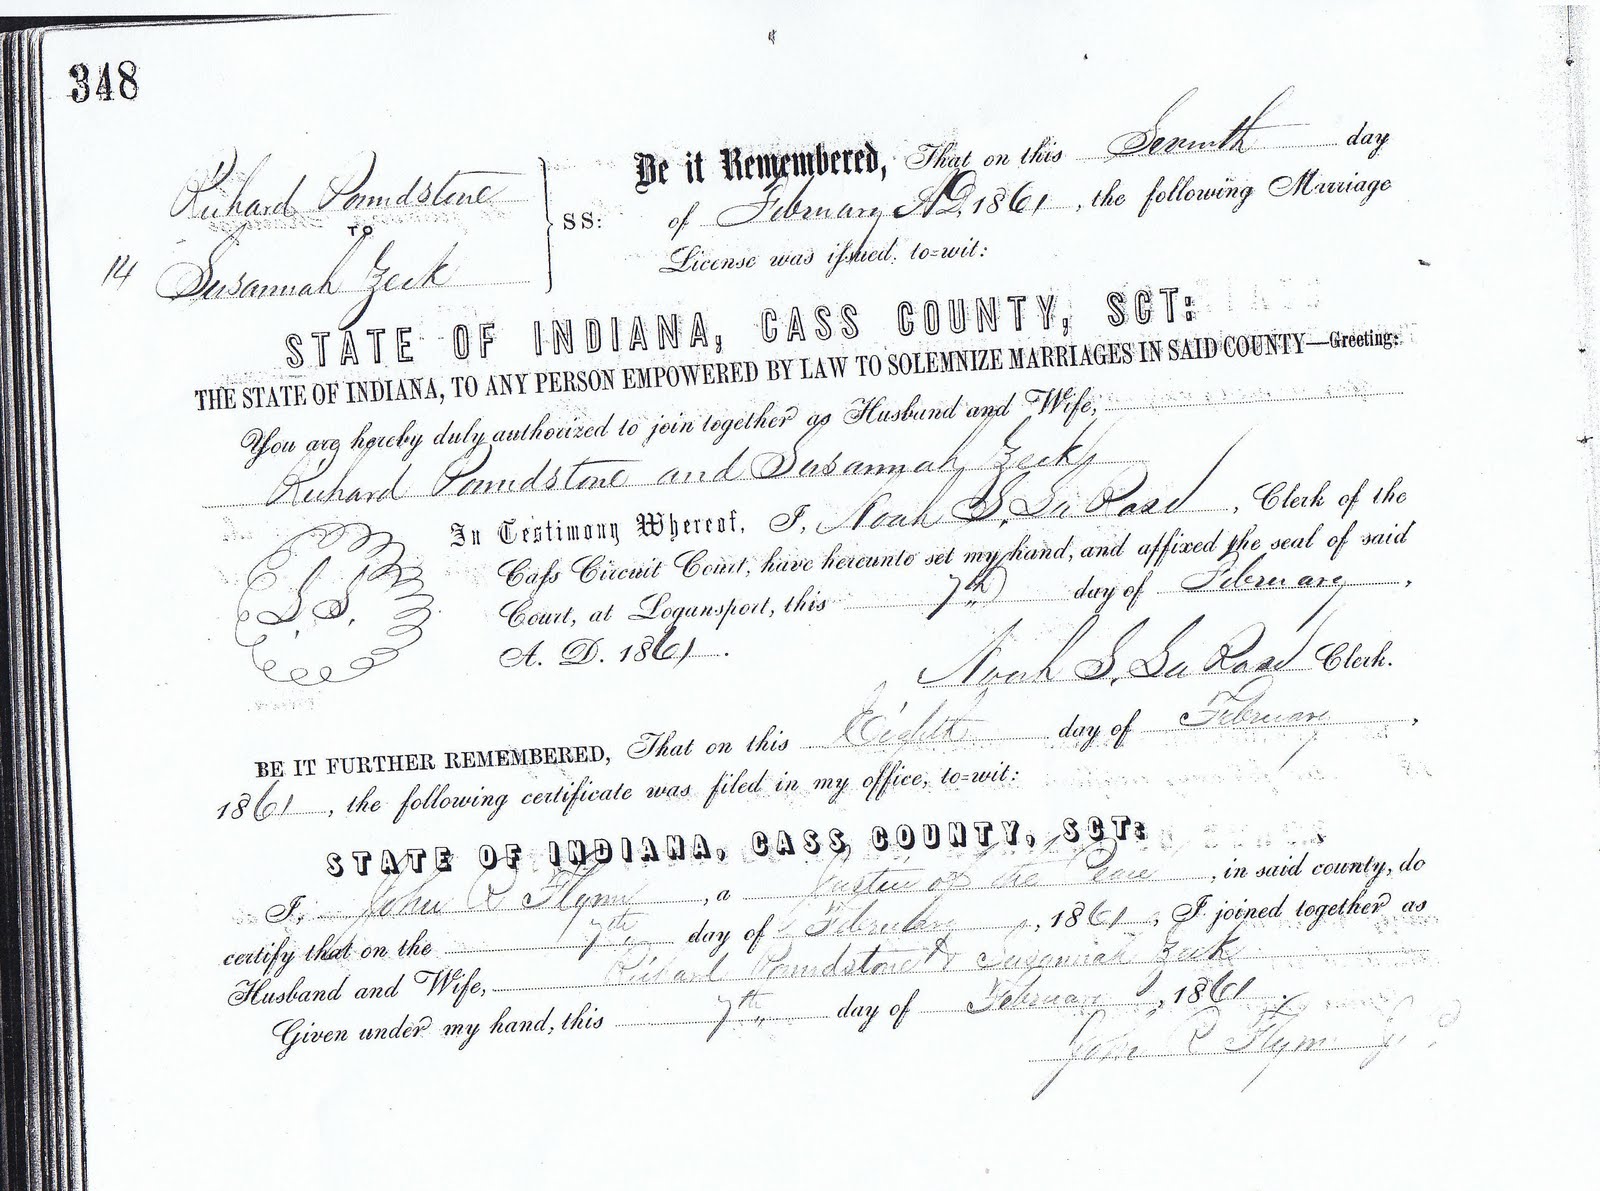 348
Richard Poundstone
TO
14 Susannah Zeek
SS:
Be it Remembered, That on this Seventh day
of February AD. 1861, the following Marriage
License was issued, to=wit:
STATE OF INDIANA, CASS COUNTY, SCT:
THE STATE OF INDIANA, TO ANY PERSON EMPOWERED BY LAW TO SOLEMNIZE MARRIAGES IN SAID COUNTY—Greeting:
You are hereby duly authorized to join together as Husband and Wife,
Richard Poundstone and Susannah Zeek
In Testimony Whereof, I, Noah S. La Rose, Clerk of the
Cass Circuit Court, have hereunto set my hand, and affixed the seal of said
Court, at Logansport, this 7th day of February,
A. D. 1861.
L.S.
Noah S. La Rose Clerk.
BE IT FURTHER REMEMBERED, That on this Eighth day of February,
1861, the following certificate was filed in my office, to=wit:
STATE OF INDIANA, CASS COUNTY, SCT:
I, John R Flynn, a Justice of the Peace, in said county, do
certify that on the 7th day of February, 1861, I joined together as
Husband and Wife, Richard Poundstone & Susannah Zeek
Given under my hand, this 7th day of February, 1861.
John R Flynn J.P.